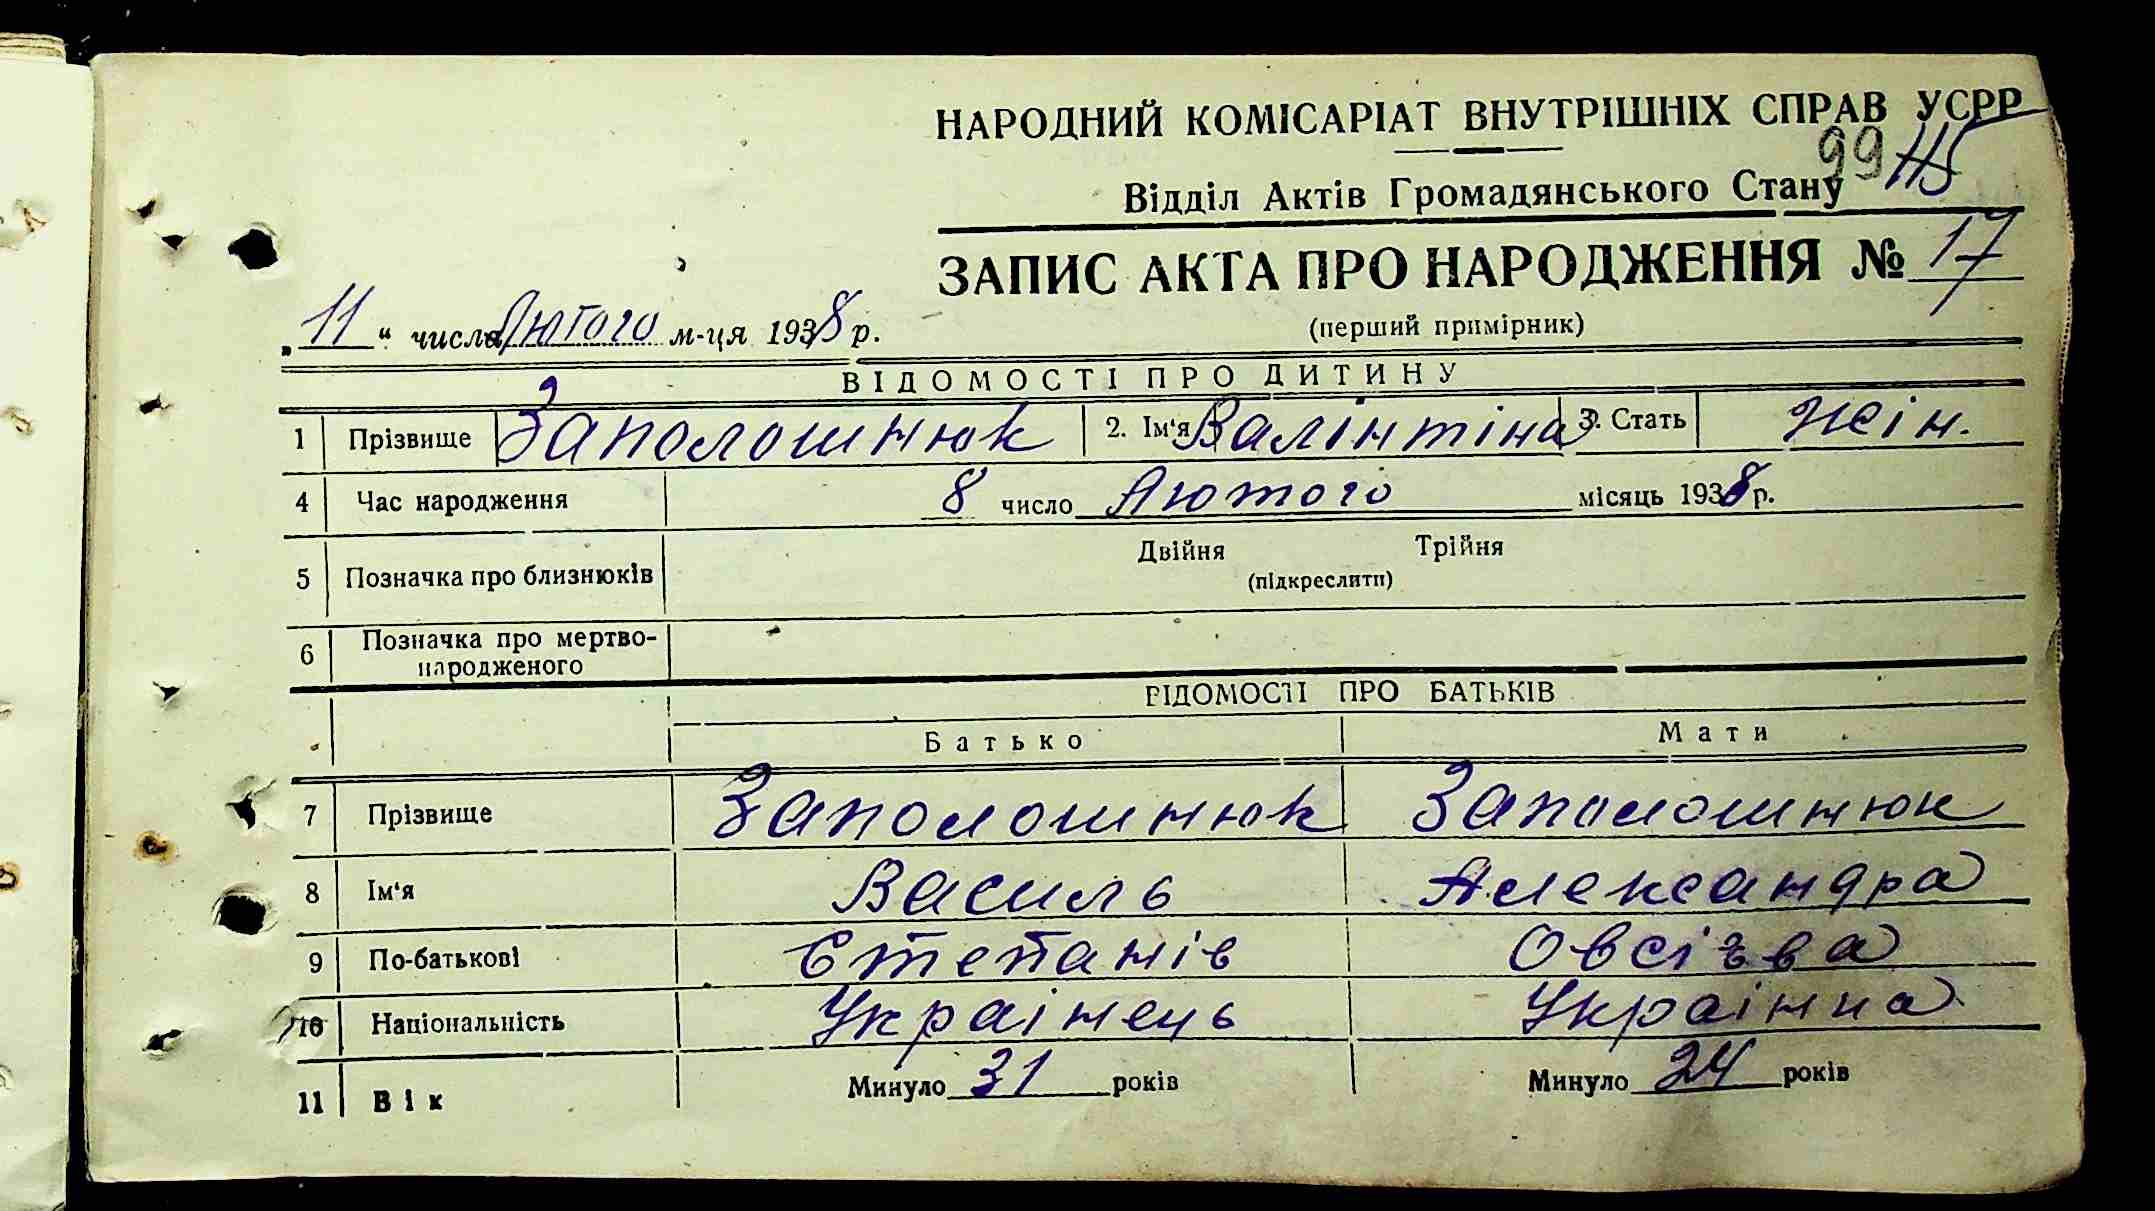 НАРОДНИЙ КОМІСАРІАТ ВНУТРІШНІХ СПРАВ УСРР
99 115
Відділ Актів Громадянського Стану
ЗАПИС АКТА ПРО НАРОДЖЕННЯ № 17
„11“ числа Лютого м-ця 1938 р.
(перший примірник)
ВІДОМОСТІ ПРО ДИТИНУ
1 Прізвище Заполошнюк 2. Ім'я Валінтіна 3. Стать жін.
4 Час народження 8 число Лютого місяць 1938 р.
5 Позначка про близнюків Двійня Трійня
(підкреслити)
6 Позначка про мертво-
народженого
ВІДОМОСТІ ПРО БАТЬКІВ
Батько Мати
7 Прізвище Заполошнюк Заполошнюк
8 Ім'я Василь Александра
9 По-батькові Степанів
10 Національність Українець Украінка
11 Вік Минуло 31 років Минуло 24 років